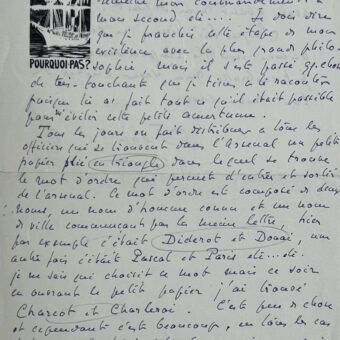 mon commandement à
mon second etc.... Je dois dire
que j'ai franchi cette étape de mon
existence avec la plus grande philo-
POURQUOI-PAS?
sophie mais il s'est passé qq. chose
de très touchant que je tiens à te raconter
puisque tu as fait tout ce qu'il était possible
pour éviter cette petite amertume.
Tous les jours on fait distribuer à tous les
officiers qui se trouvent dans l'Arsenal un petit
papier plié en triangle dans lequel se trouve
le mot d'ordre qui permet d'entrer et sortir
de l'arsenal. Ce mot d'ordre est composé de deux
noms, un nom d'homme connu et un nom
de ville commençant par la même lettre. hier
par exemple c'était Diderot et Douai, une
autre fois c'était Pascal et Paris etc...etc.
je ne sais qui choisit ce mot mais ce soir
en ouvrant le petit papier j'ai trouvé
Charcot et Charleroi. C'est peu de chose
et cependant c'est beaucoup, en tous les cas